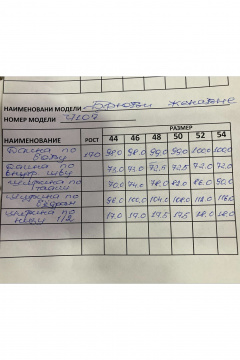 НАИМЕНОВАНИ МОДЕЛИ Брюки женские
НОМЕР МОДЕЛИ 4107
РАЗМЕР
НАИМЕНОВАНИЕ РОСТ 44 46 48 50 52 54
Длина по боку 170 98.0 98.0 99.0 99.0 100.0 100.0
Длина по внутр шву 73.0 73.0 72.5 72.5 72.0 72.0
Ширина по талии 70.0 74.0 78.0 82.0 86.0 90.0
Ширина по бедрам 96.0 100.0 104.0 108.0 112.0 116.0
Ширина по низу 1/2 17.0 17.0 17.5 17.5 18.0 18.0